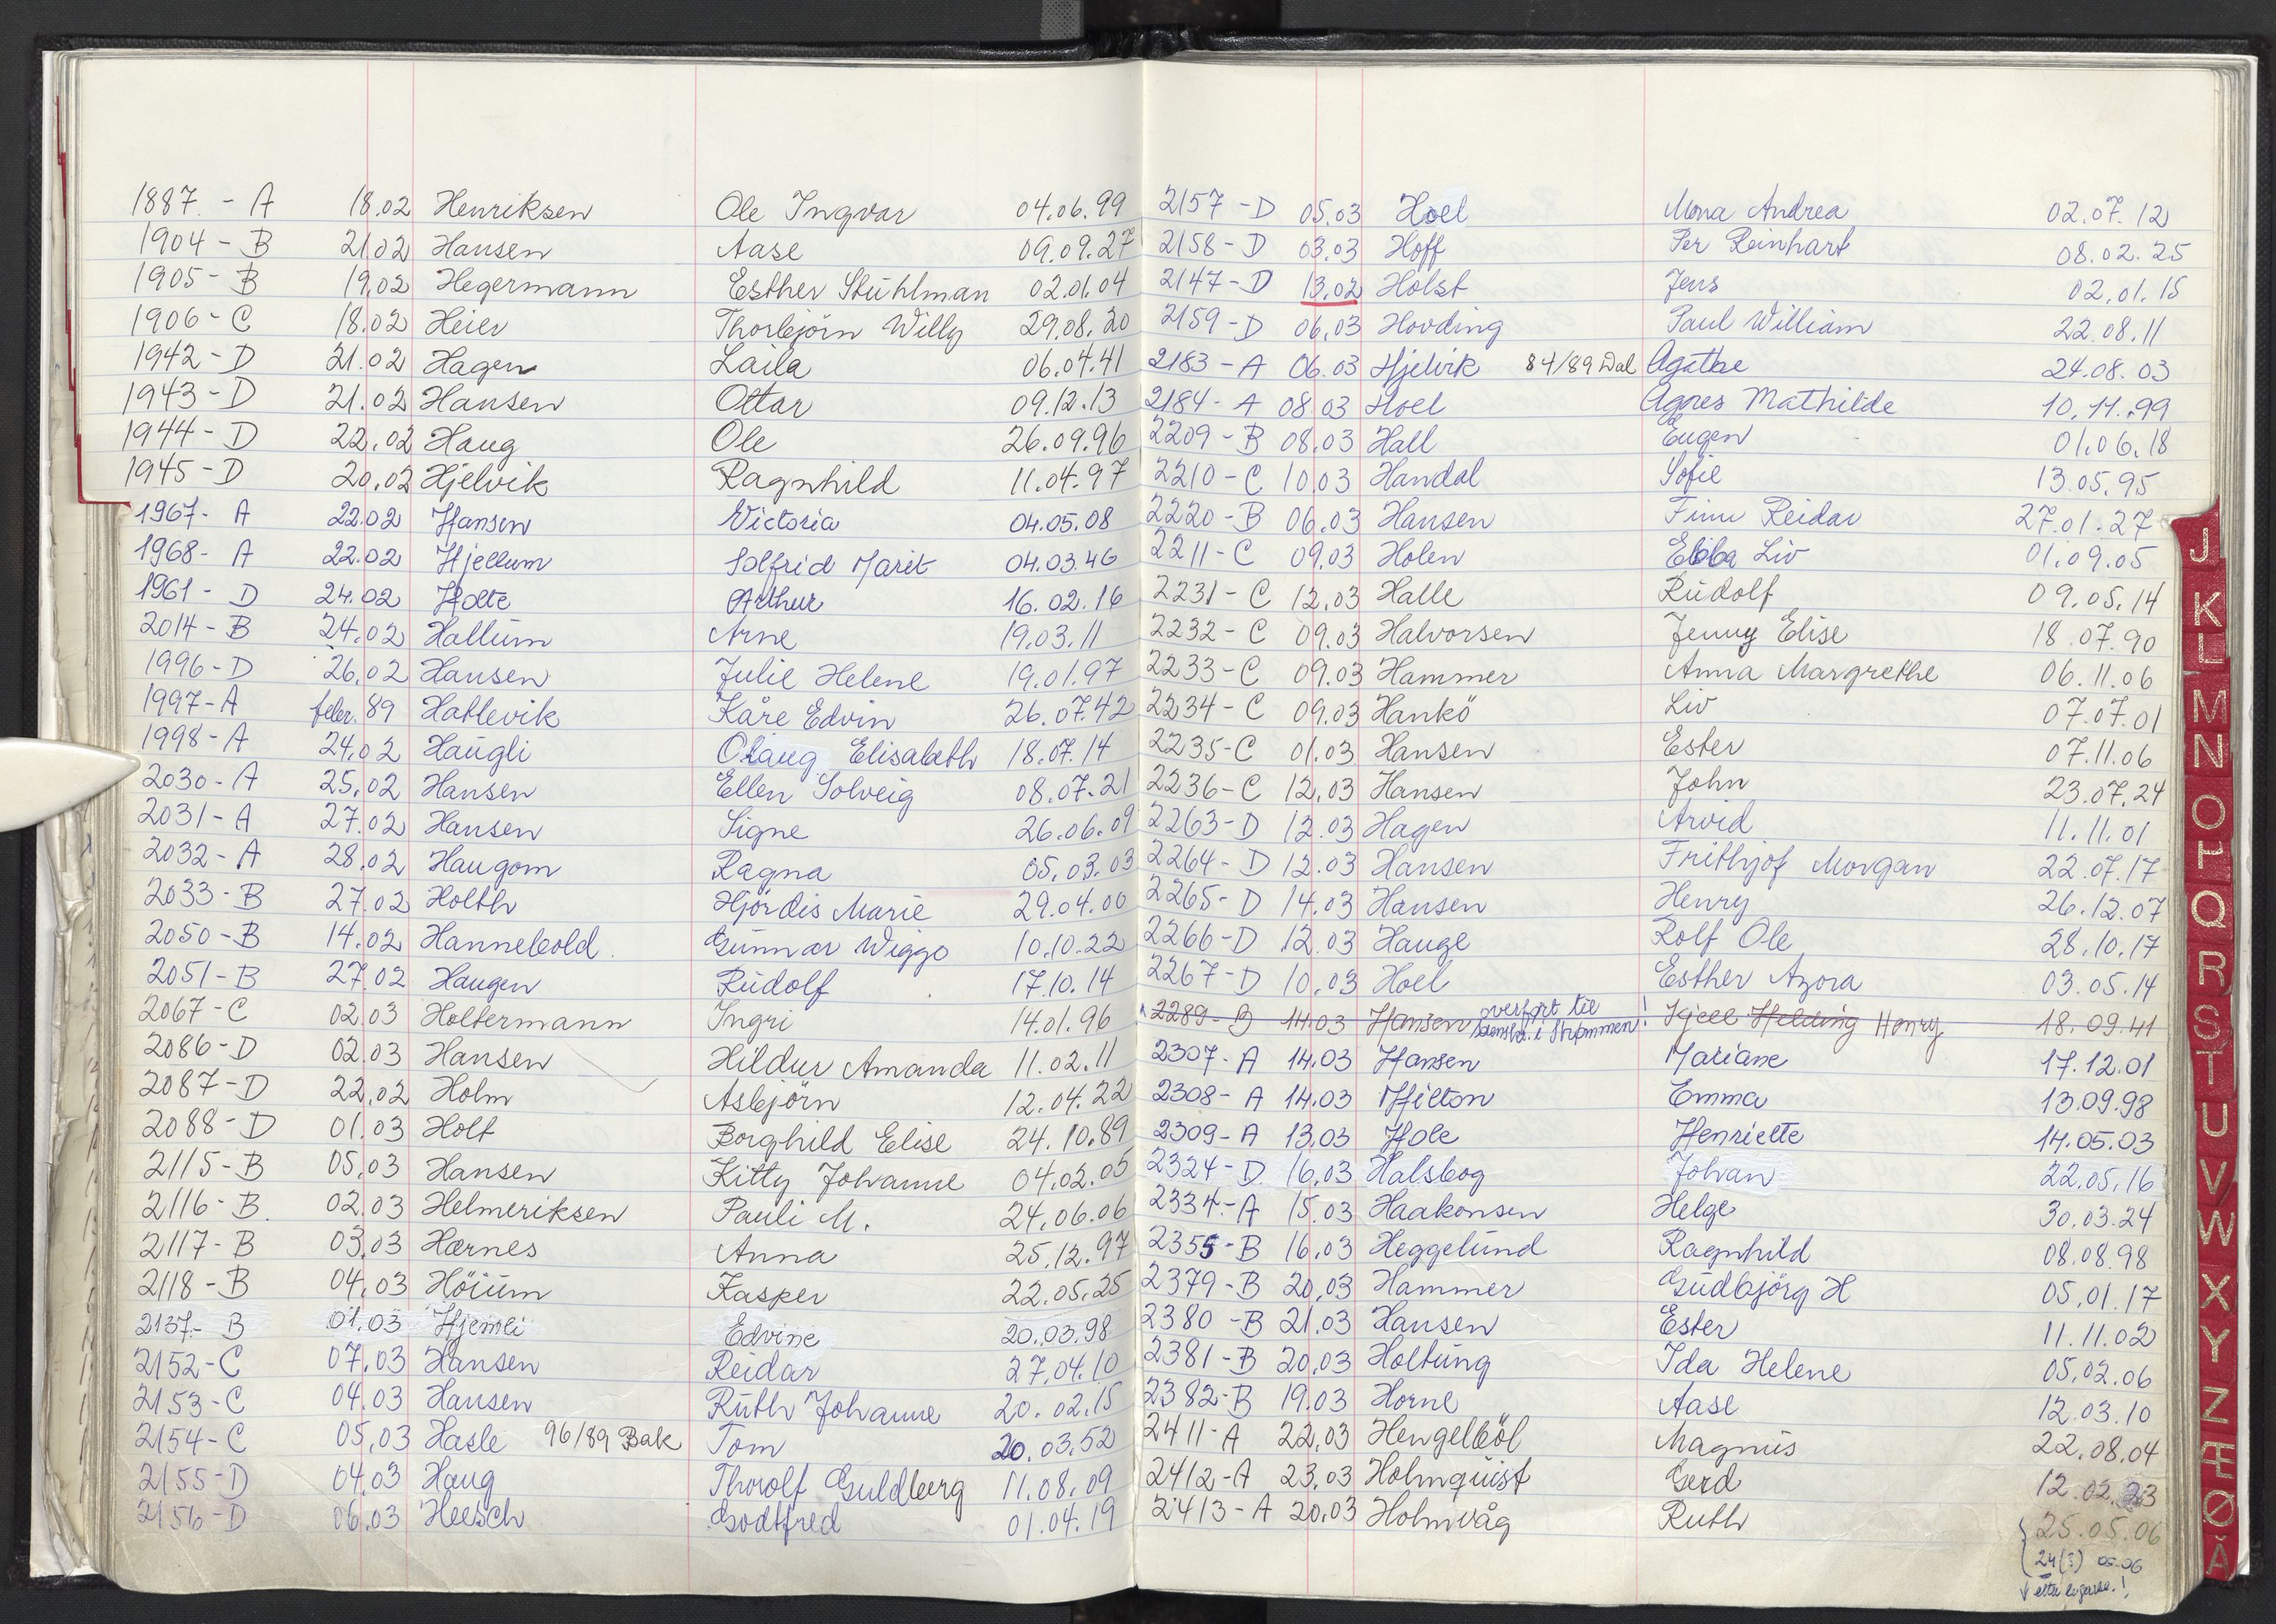 1887 - A 18.02 Henriksen Ole Ingvar 04.06.99
1904 - B 21.02 Hansen Aase 09.09.27
1905 - B 19.02 Hegermann Esther Stuhlman 02.01.04
1906 - C 18.02 Heier Thorbjörn Willy 29.08.20
1942 - D 21.02 Hagen Laila 06.04.41
1943 - D 21.02 Hansen Ottar 09.12.13
1944 - D 22.02 Haug Ole 26.09.96
1945 - D 20.02 Hjelvik Ragnhild 11.04.97
1967 - A 22.02 Hansen Victoria 04.05.08
1968 - A 22.02 Hjellum Solfrid Marit 04.03.46
1961 - D 24.02 Holte Arthur 16.02.16
2014 - B 24.02 Hallum Arne 19.03.11
1996 - D 26.02 Hansen Julie Helene 19.01.97
1997 - A febr. 89 Hatlevik Kåre Edvin 26.07.42
1998 - A 24.02 Haugli Olaug Elisabeth 18.07.14
2030 - A 25.02 Hansen Ellen Solveig 08.07.21
2031 - A 27.02 Hansen Signe 26.06.09
2032 - A 28.02 Haugom Ragna 05.03.03
2033 - B 27.02 Holth Hjördis Marie 29.04.00
2050 - B 14.02 Hannebold Gunnar Wiggo 10.10.22
2051 - B 27.02 Haugen Rudolf 17.10.14
2067 - C 02.03 Holtermann Ingri 14.01.96
2086 - D 02.03 Hansen Hildur Amanda 11.02.11
2087 - D 22.02 Holm Asbjörn 12.04.22
2088 - D 01.03 Holt Borghild Elise 24.10.89
2115 - B 05.03 Hansen Kitty Johanne 04.02.05
2116 - B. 02.03 Helmeriksen Pauli M. 24.06.06
2117 - B 03.03 Hærnes Anna 25.12.97
2118 - B 04.03 Höium Kasper 22.05.25
2137 - B 01.03 Hjemli Edvine 20.03.98
2152 - C 07.03 Hansen Reidar 27.04.10
2153 - C 04.03 Hansen Ruth Johanne 20.02.15
2154 - C 05.03 Hasle 96/89 Bak Tom 20.03.52
2155 - D 04.03 Haug Thorolf Guldberg 11.08.09
2156 - D 06.03 Heesch Godtfred 01.04.19
2157 - D 05.03 Hoel Mona Andrea 02.07.12
2158 - D 03.03 Hoff Per Reinhart 08.02.25
2147 - D 13.02 Holst Jens 02.01.15
2159 - D 06.03 Hovding Paul William 22.08.11
2183 - A 06.03 Hjelvik 84/89 Dal Agathe 24.08.03
2184 - A 08.03 Hoel Agnes Mathilde 10.11.99
2209 - B 08.03 Hall Eugen 01.06.18
2210 - C 10.03 Handal Sofie 13.05.95
2220 - B 06.03 Hansen Finn Reidar 27.01.27
2211 - C 09.03 Holen Ebba Liv 01.09.05
2231 - C 12.03 Halle Rudolf 09.05.14
2232 - C 09.03 Halvorsen Jenny Elise 18.07.90
2233 - C 09.03 Hammer Anna Margrethe 06.11.06
2234 - C 09.03 Hankö Liv 07.07.01
2235 - C 01.03 Hansen Ester 07.11.06
2236 - C 12.03 Hansen John 23.07.24
2263 - D 12.03 Hagen Arvid 11.11.01
2264 - D 12.03 Hansen Frithjof Morgan 22.07.17
2265 - D 14.03 Hansen Henry 26.12.07
2266 - D 12.03 Hauge Rolf Ole 28.10.17
2267 - D 10.03 Hoel Esther Azora 03.05.14
2289 - B 14.03 Hansen overført til i Strømmen! Kjell Helding Henry 18.09.41
2307 - A 14.03 Hansen Mariane 17.12.01
2308 - A 14.03 Hilton Emma 13.09.98
2309 - A 13.03 Hole Henriette 14.05.03
2324 - D 16.03 Halsbog Johan 22.05.16
2334 - A 15.03 Haakonsen Helge 30.03.24
2355 - B 16.03 Heggelund Ragnhild 08.08.98
2379 - B 20.03 Hammer Gudbjörg H 05.01.17
2380 - B 21.03 Hansen Ester 11.11.02
2381 - B 20.03 Holtung Ida Helene 05.02.06
2382 - B 19.03 Horne Aase 12.03.10
2411 - A 22.03 Hengelböl Magnus 22.08.04
2412 - A 23.03 Holmquist Gerd 12.02.23
2413 - A 20.03 Holmvåg Ruth 25.05.06
24(?) 05.06
J
K
L
M
N
O
P
Q
R
S
T
U
V
W
X
Y
Z
Æ
Ø
Å